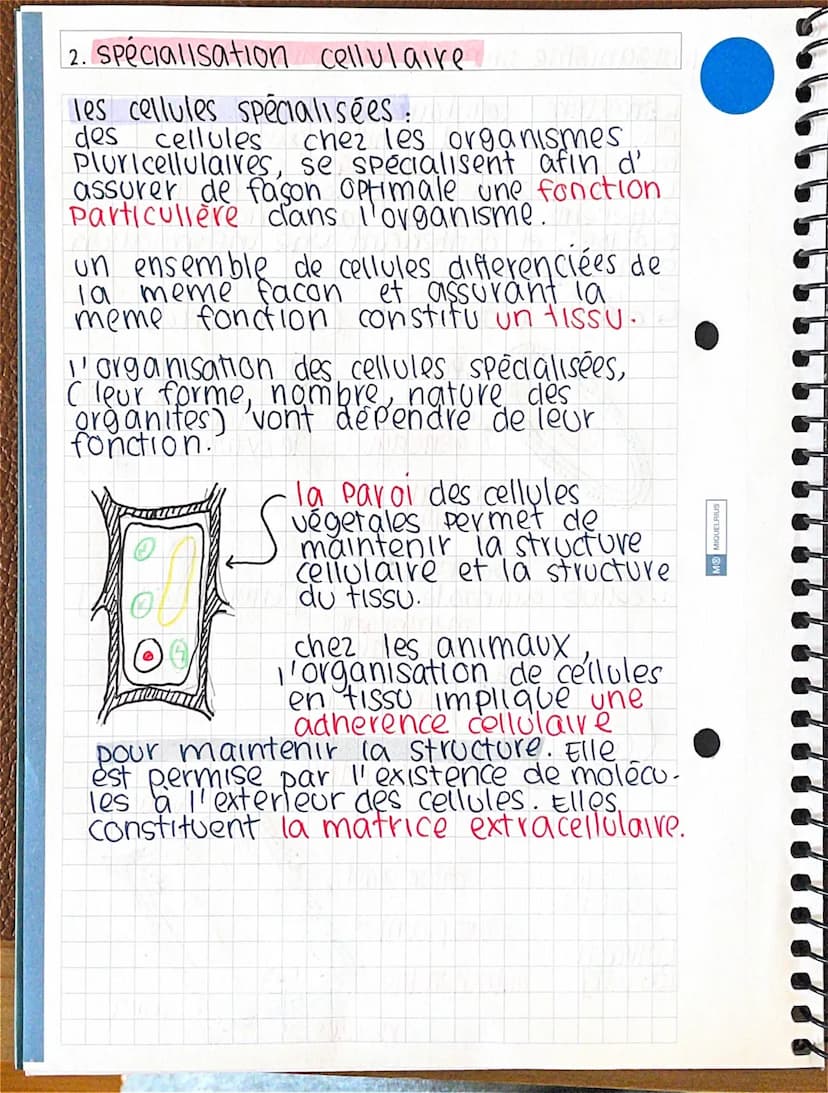 2. spécialisation cellulaire
les cellules spécialisées :
des cellules chez les organismes
pluricellulaires, se spécialisent afin d'
assurer de façon optimale une fonction
particulière dans l'organisme.
un ensemble de cellules différenciées de
la meme facon et assurant la
meme fonction constitu un tissu.
l'organisation des cellules spécialisées,
( leur forme, nombre, nature des
organites) vont dépendre de leur
fonction.
la paroi des cellules
végetales permet de
maintenir la structure
cellulaire et la structure
du tissu.
chez les animaux,
l'organisation de cellules
en tissu implique une
adherence cellulaire
pour maintenir la structure. Elle
est permise par l'existence de molécu-
les à l'exterieur des cellules. Elles
constituent la matrice extracellulaire.
MIQUELRIUS